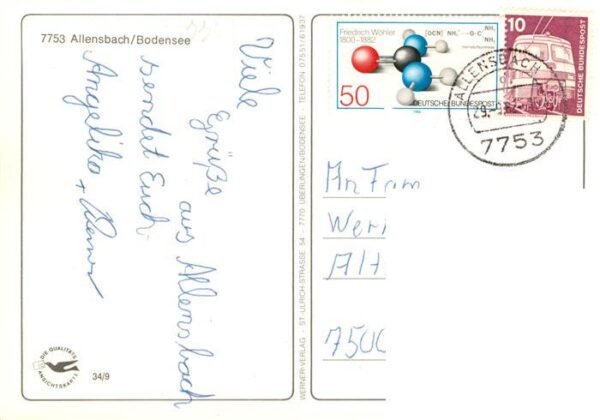 7753 Allensbach/Bodensee
Viele
Grüße
aus Allensbach
sendet Euch
Angelika
+
DIE QUALITÄTS
ANSICHTSKARTE
34/9
WERNER-VERLAG · ST-ULRICH-STRASSE 54 · 7770 ÜBERLINGEN/BODENSEE · TELEFON 07551/61937
Friedrich Wöhler
1800-1882
50
DEUTSCHE BUNDESPOST
10
DEUTSCHE BUNDESPOST
ALLENSBACH
7753
An Fam
Wer
Alt
750